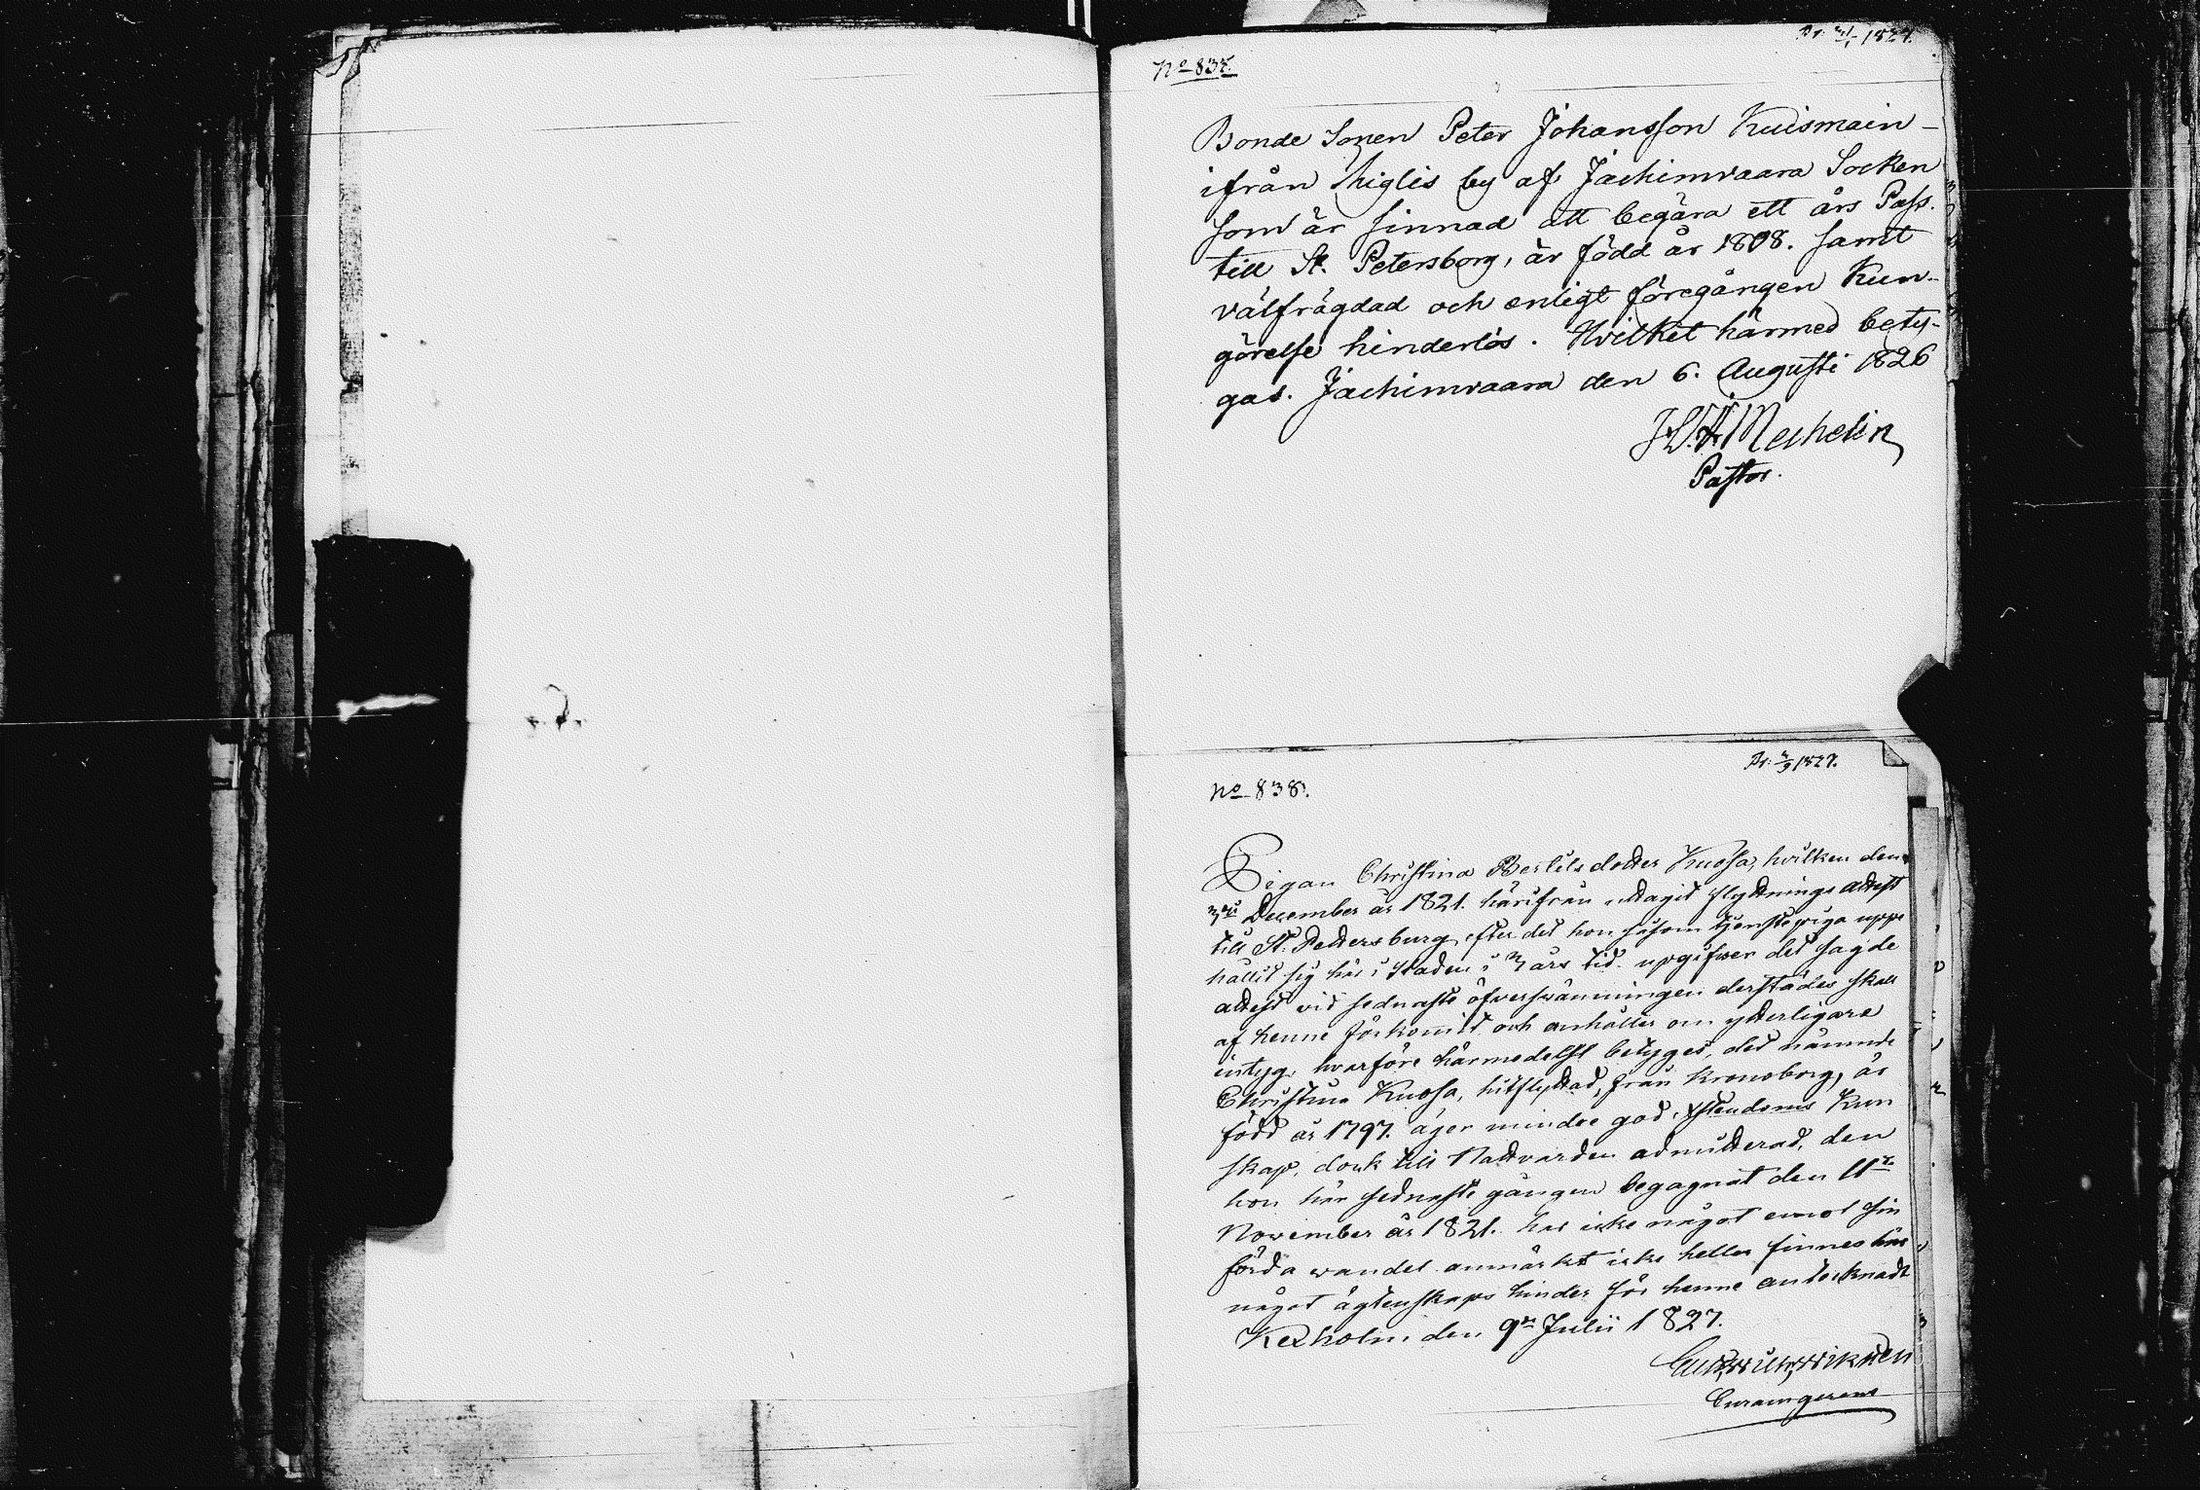 Pr. 31/1 1827.
No 837.
Bonde Sonen Peter Johansson Kuismain-
ifrån Miglis by af Jachimvaara Socken
som är sinnad att begära ett års Pass.
till St. Petersborg, är född år 1808. samt
välfrägdad och enligt föregången Kun-
görelse hinderlös. Hvilket härmed bety-
gas. Jachimvaara den 6. Augusti 1826
Mechelin
Pastor.
Pr. 2/9 1827.
No 838.
Pigan Christina Bertils dotter Kuosa, hvilken den
3die December år 1821. härifrån uttagit flyttnings attest
till St. Pettersburg efter det hon såsom tjenstepiga uppe
hållit sig här i staden i 3 års tid. uppgifwer det sagde
attest vid sednaste öfversvämningen derstädes skall
af henne förkommit och anhåller om ytterligare
intyg, hvarföre härmedelst betyges, det nämnde
Christina Kuosa, hitflyttad, från Kronoborg, är
född år 1797. äger mindre god Xstendoms Kun
skap, dock till Nattvarden admitterad, den
hon här sednaste gången begagnat den 11te
November år 1821. har icke något emot sin
förda wandel anmärkt icke heller finnes här
något ägtenskaps hinder för henne antecknadt
Kexholm den 9de Julii 1827.
Wiknen
Curamgerens